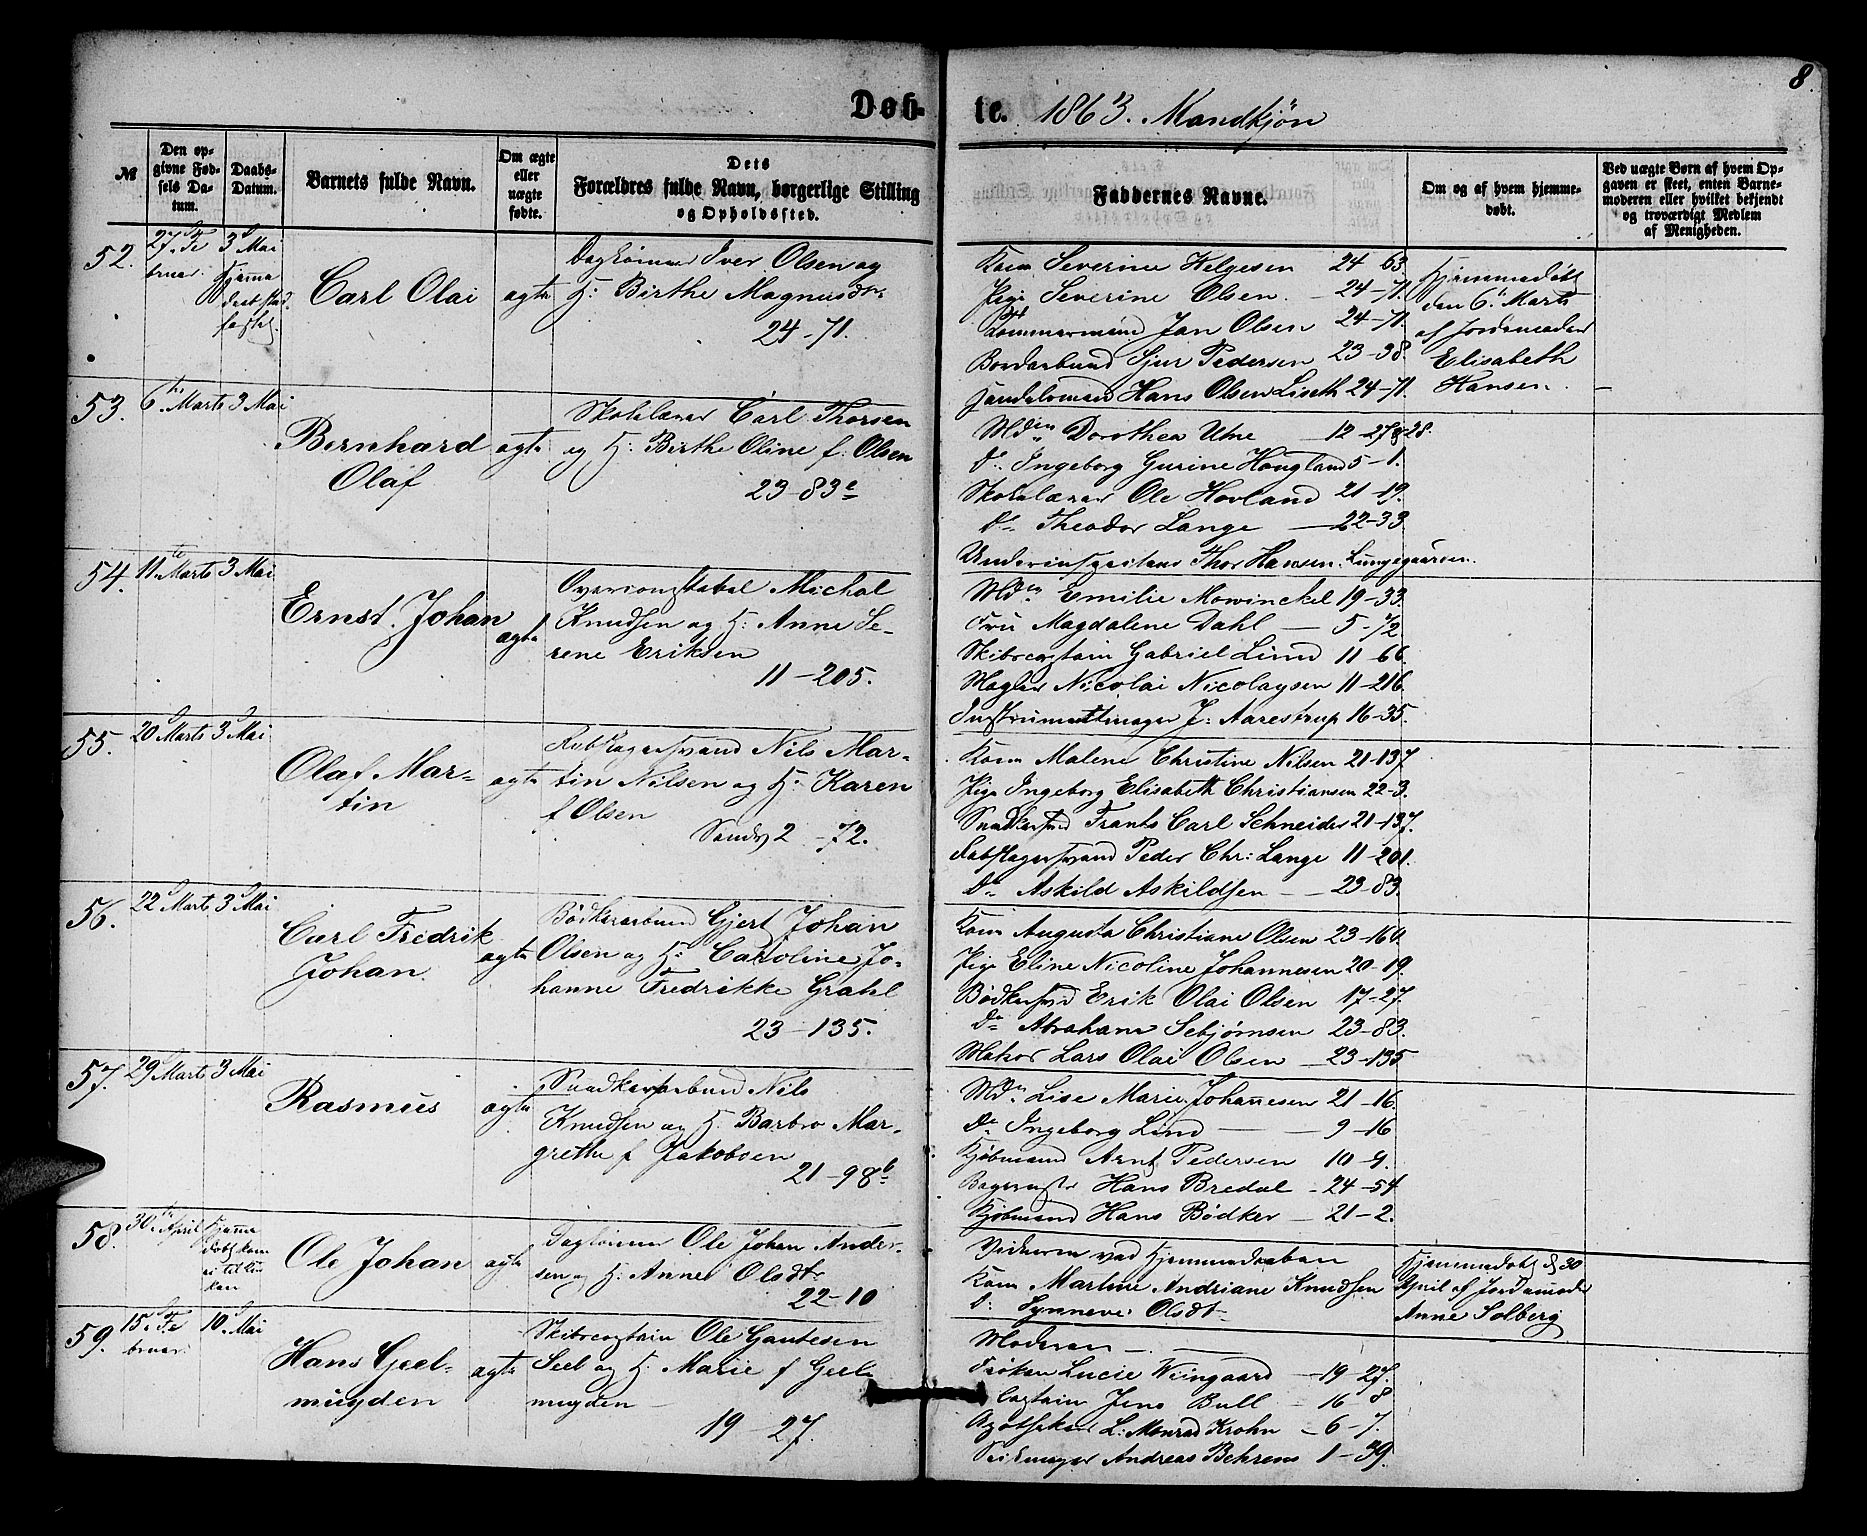 8.
Døb-te. 1863. Mandkjön
№
Den opgivne Fødsels Datum.
Daabs-Datum.
Barnets fulde Navn.
Om ægte eller uægte fødte.
Dets Forældres fulde Navn, borgerlige Stilling og Opholdssted.
Faddernes Navne.
Om og af hvem hjemmedøbt.
Ved uægte Børn af hvem Opgaven er skeet, enten Barnemoderen eller hvilket bekjendt og troværdigt Medlem af Menigheden.
52.
27. Fe
bruar.
3 Mai
Carl Olai
ægte
Iver Olsen og
H: Birthe Magnusdr
24-71.
Kone Severine Helgesen 24-63.
Pige Severine Olsen 24-71.
Tømmermand Jan Olsen 24-71.
Sjur Pedersen 23-38.
Handelsmand Hans Olsen Liseth 24-71.
Hjemmedøbt
den 6. Marts
af Jordemoder
Elisabeth
Hansen.
53.
6te Marts
3 Mai
Bernhard
Olaf
ægte
Skolelærer Carl Thorsen
og H: Birthe Oline f. Olsen
23-83c
Md. Dorothea Utne 12-27&28.
Do. Ingeborg Gurine Hougland 5-1.
Skolelærer Ole Hovland 21-19.
Do. Theodor Lange 22-33.
Thor Hansen. Lungegaarden.
54.
11te Marts
3 Mai
Ernst. Johan
ægte
Overconstabel Michal
Knudsen og H: Anne Se-
rene Eriksen
11-205.
Md. Emilie Mowinckel 19-33.
Fru Magdalene Dahl 5-72
Skibscaptain Gabriel Lind 11-66.
Mægler Nicolai Nicolaysen 11-216.
Instrumentmager J: Aarestrup 16-35.
55.
20 Marts
3 Mai
Olaf Mar-
tin
ægte
Rebslagersvend Nils Mar-
tin Nilsen og H: Karen
f Olsen
Sandv 2-72.
Kone Malene Christine Nilsen 21-137
Pige Ingeborg Elisabeth Christiansen 22-3.
Snedkersvend Frants Carl Schneider 21-137.
Rebslagersvend Peder Chr: Lange 11-201.
Do. Askild Askildsen 23-83.
56.
22 Marts
3 Mai
Carl Fredrik
Johan
ægte
Bødkerarbeid Gjert Johan
Olsen og H: Caroline Jo-
hanne Fredrikke Grahl
23-135.
Kone Augusta Christiane Olsen 23-160.
Pige Eline Nicoline Johannesen 20-19.
Bødkersvend Erik Olai Olsen 17-27.
Do. Abraham Sebjørnsen 23-83.
Matros Lars Olai Olsen 23-135
57.
29 Marts
3 Mai
Rasmus
ægte
Snedkerarbeid Nils
Knudsen og H: Barbro Mar-
grethe f Jakobsen
21-98b
Md. Lise Marie Johannesen 21-16.
Do. Ingeborg Lind 9-16
Kjøbmand Arnt Pedersen 10-9.
Bagermstr Hans Bredal 24-54
Kjøbmand Hans Bödker 21-2.
58.
30te April
Hjemme
døbt kom
ei til Kir
ken
Ole Johan
ægte
Dagleier Ole Johan Ander-
sen og H: Anne Olsdtr
22-10
Vidnerne ved Hjemmedaaben
Kone Martine Andriane Knudsen
Do. Synneve Olsdtr
Hjemmedøbt d 30
April af Jordemoder
Anne Solberg
59.
15. Fe
bruar
10. Mai
Hans Geel-
muyden
ægte
Skibscaptain Ole Gautesen
Seel og H: Marie f Geel-
muyden
19-27.
Moderen
Frøken Lucie Wiingaard 19-27.
Captain Jens Bull 16-8
Apotheker L: Monrad Krohn 6-7.
Seilmager Andreas Behrens 1-39.